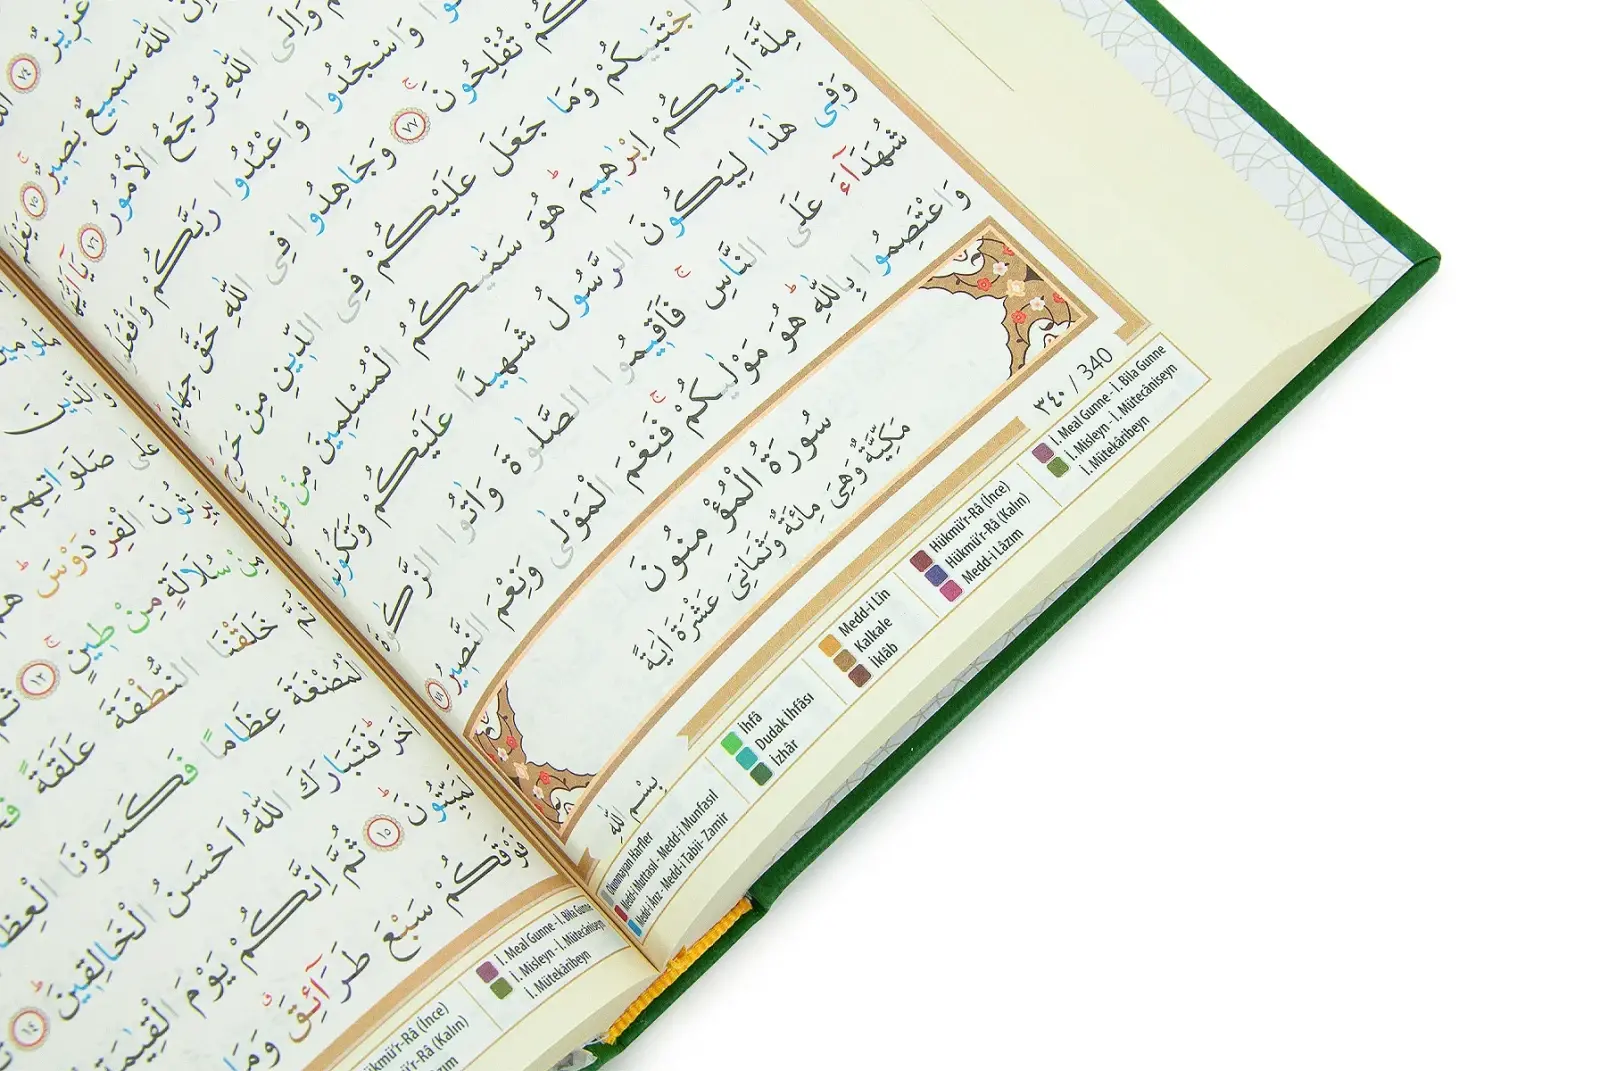 عَزِيزٌ ﴿٧٤﴾
اللّٰهَ سَمِيعٌ بَصِيرٌ ﴿٧٥﴾ يَعْلَمُ
وَاِلَى اللّٰهِ تُرْجَعُ الْاُمُورُ ﴿٧٦﴾ يَٓا اَيُّهَا
وَاسْجُدُوا وَاعْبُدُوا رَبَّكُمْ وَافْعَلُوا
تُفْلِحُونَ ﴿٧٧﴾ وَجَاهِدُوا فِى اللّٰهِ حَقَّ جِهَادِهِ
اجْتَبٰيكُمْ وَمَا جَعَلَ عَلَيْكُمْ فِى الدِّينِ مِنْ حَرَجٍ
مِلَّةَ اَبِيكُمْ اِبْرٰهِيمَ هُوَ سَمّٰيكُمُ الْمُسْلِمِينَ مِنْ قَبْلُ
وَفِى هٰذَا لِيَكُونَ الرَّسُولُ شَهِيدًا عَلَيْكُمْ وَتَكُونُوا
شُهَدَٓاءَ عَلَى النَّاسِ فَاَقِيمُوا الصَّلٰوةَ وَاٰتُوا الزَّكٰوةَ
وَاعْتَصِمُوا بِاللّٰهِ هُوَ مَوْلٰيكُمْ فَنِعْمَ الْمَوْلٰى وَنِعْمَ النَّصِيرُ ﴿٧٨﴾
سُورَةُ الْمُؤْمِنُونَ
مَكِّيَّةٌ وَهِىَ مِائَةٌ وَثَمَانِىَ عَشْرَةَ اٰيَةً
بِسْمِ اللّٰهِ
٣٤٠ / 340
İ. Meal Gunne - İ. Bila Gunne
İ. Misleyn - İ. Mütecâniseyn
İ. Mütekâribeyn
Hükmü'r-Râ (İnce)
Hükmü'r-Râ (Kalın)
Medd-i Lâzım
Medd-i Lîn
Kalkale
İklâb
İhfâ
Dudak İhfâsı
İzhâr
Okunmayan Harfler
Medd-i Muttasıl - Medd-i Munfasıl
Medd-i Arız - Medd-i Tabii- Zamir
وَالَّذِينَ
عَلٰى صَلَوَاتِهِمْ
يَرِثُونَ الْفِرْدَوْسَ هُمْ
مِنْ سُلَالَةٍ مِنْ طِينٍ ﴿١٢﴾ ثُمَّ
ثُمَّ خَلَقْنَا النُّطْفَةَ عَلَقَةً
الْمُضْغَةَ عِظَامًا فَكَسَوْنَا الْعِظَامَ
اٰخَرَ فَتَبَارَكَ اللّٰهُ اَحْسَنُ الْخَالِقِينَ ﴿١٤﴾
لَمَيِّتُونَ ﴿١٥﴾ ثُمَّ اِنَّكُمْ يَوْمَ الْقِيٰمَةِ
فَوْقَكُمْ سَبْعَ طَرَٓائِقَ وَمَا
İ. Meal Gunne - İ. Bila Gunne
İ. Misleyn - İ. Mütecâniseyn
İ. Mütekâribeyn
Hükmü'r-Râ (İnce)
Hükmü'r-Râ (Kalın)